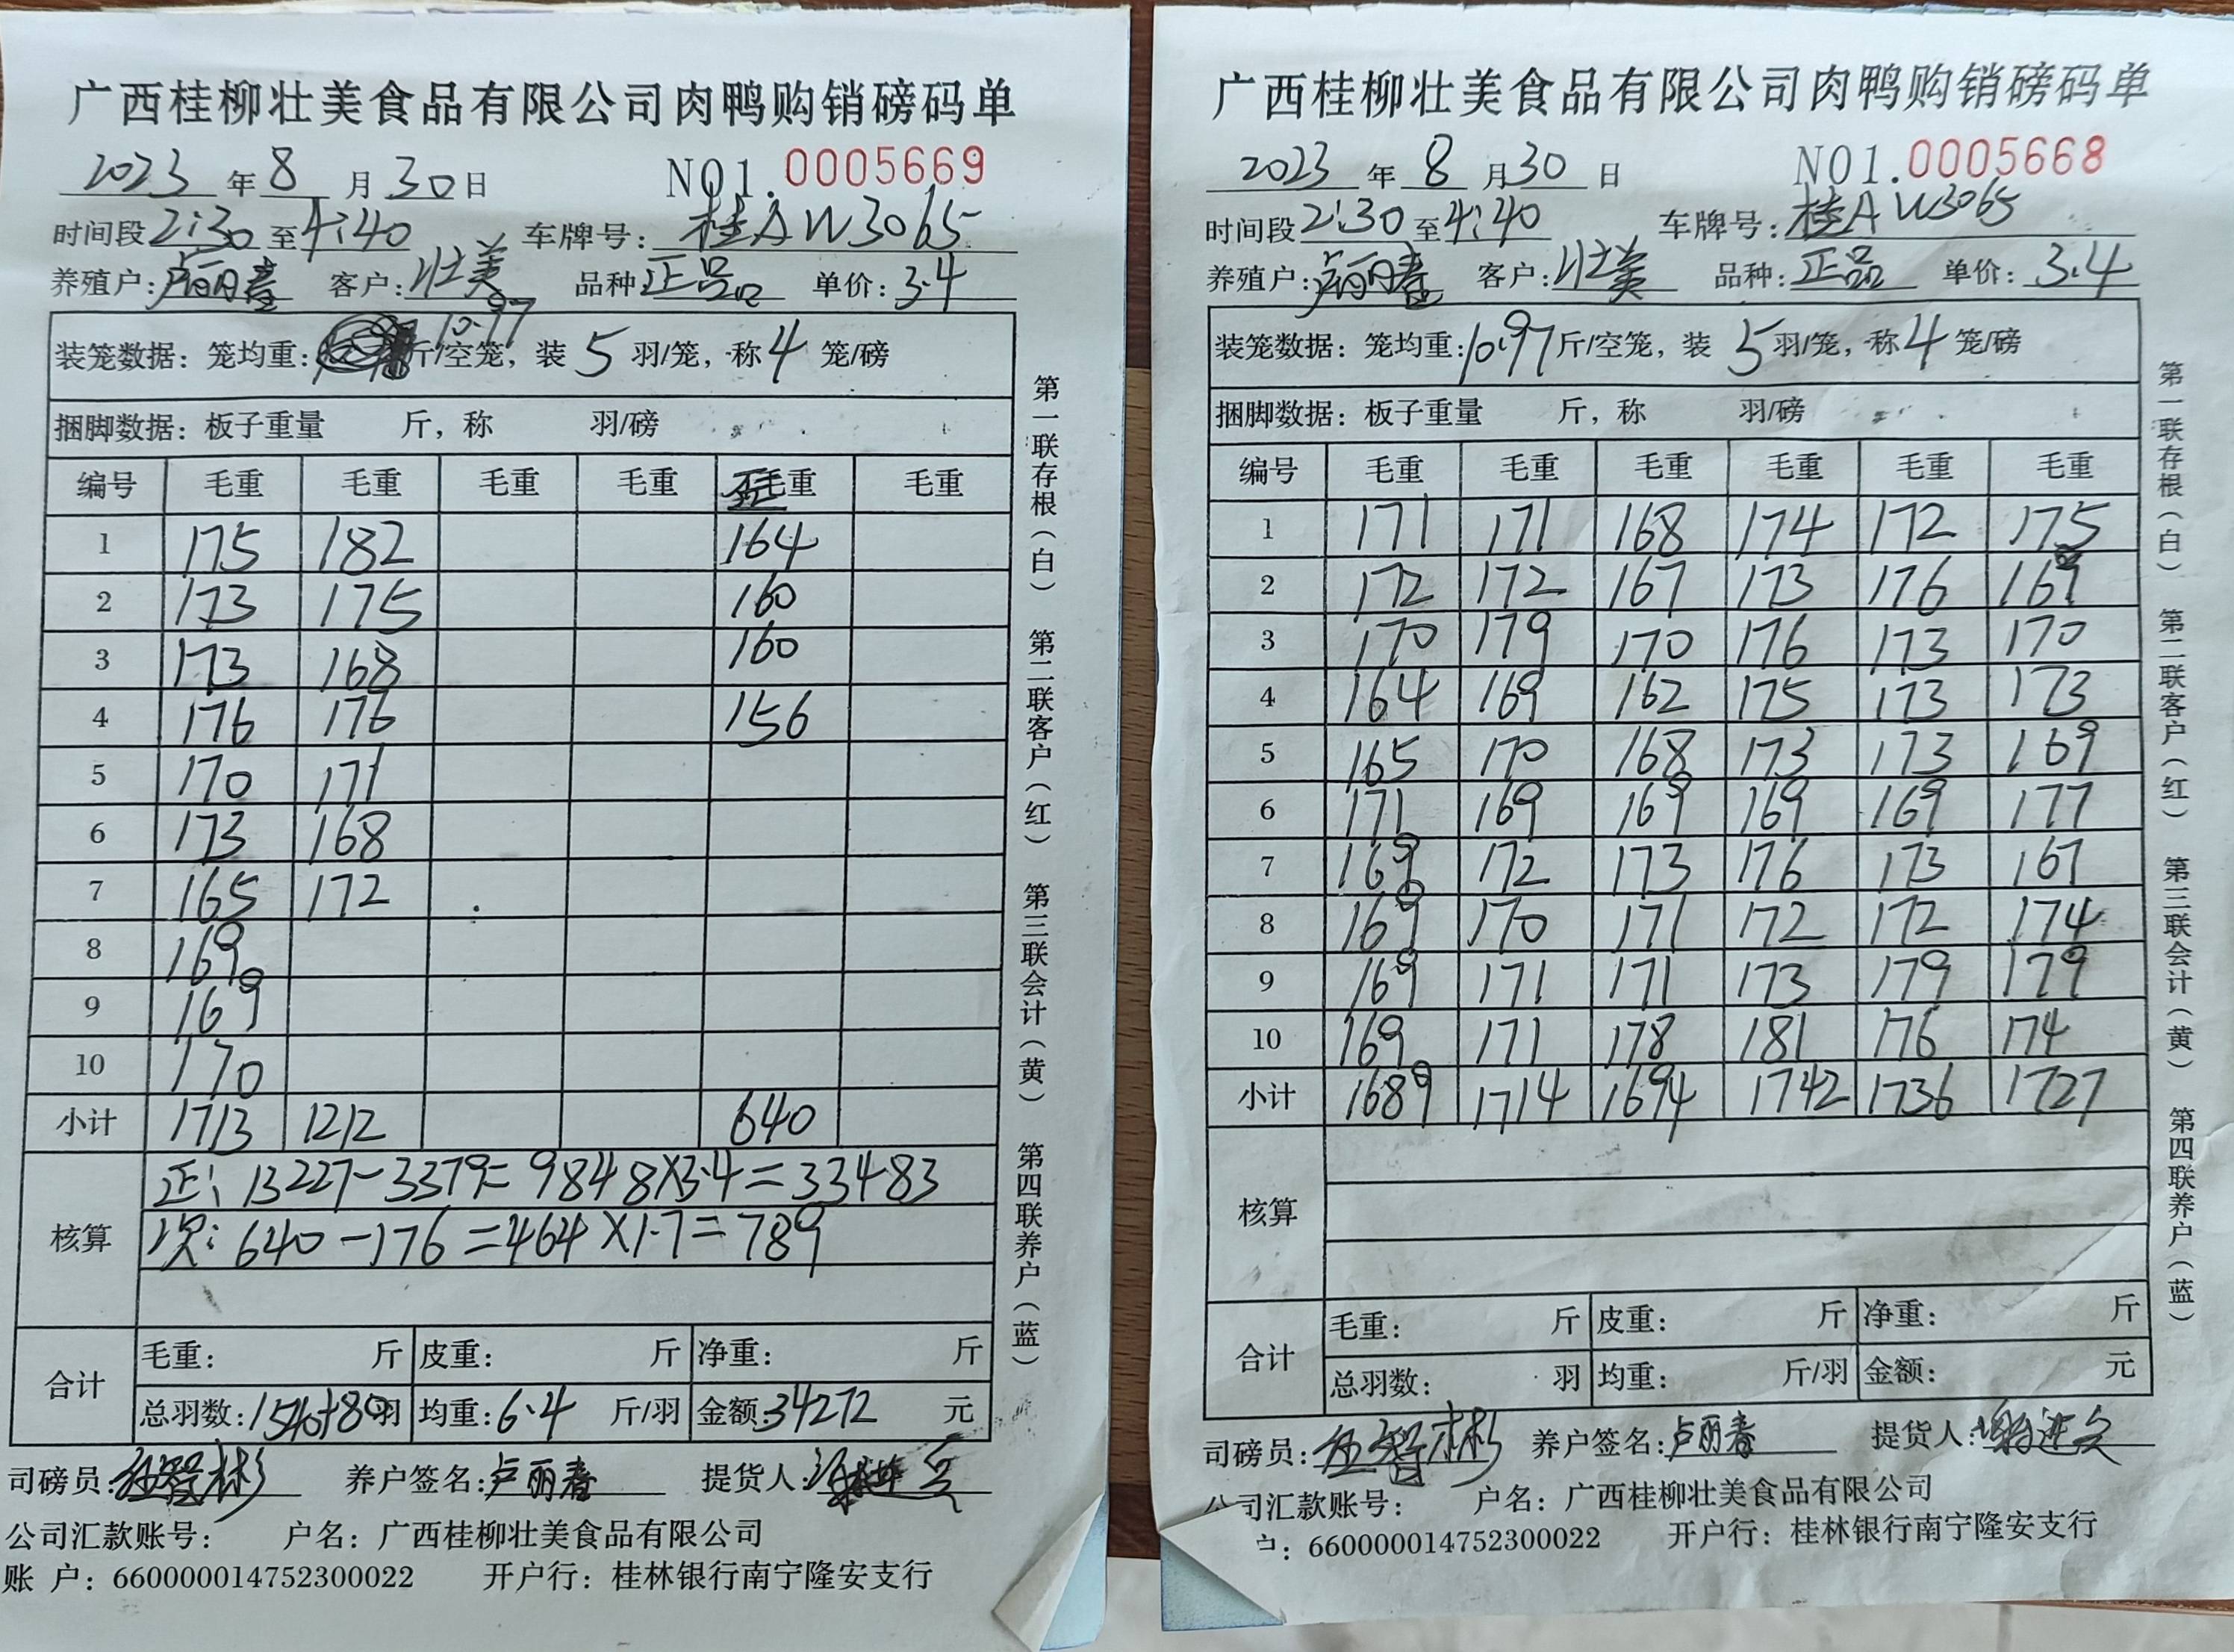 广西桂柳壮美食品有限公司肉鸭购销磅码单
2023 年 8 月 30 日 NO1.0005669
时间段 2:30 至 4:40 车牌号: 桂AW3065
养殖户: 卢丽春 客户: 壮美 品种 正品 单价: 3.4
装笼数据: 笼均重: 10.97 斤/空笼, 装 5 羽/笼, 称 4 笼/磅
捆脚数据: 板子重量 斤, 称 羽/磅
编号 毛重 毛重 毛重 毛重 毛重 毛重
1 175 182 164
2 173 175 160
3 173 168 160
4 176 176 156
5 170 171
6 173 168
7 165 172
8 169
9 169
10 170
小计 1713 1212 640
核算
正: 13227-3379=9848×3.4=33483
次: 640-176=464×1.7=789
合计
毛重: 斤 皮重: 斤 净重: 斤
总羽数: 1540+80羽 均重: 6.4 斤/羽 金额: 34272 元
司磅员: 养户签名: 卢丽春 提货人:
公司汇款账号: 户名: 广西桂柳壮美食品有限公司
账 户: 660000014752300022 开户行: 桂林银行南宁隆安支行
第一联存根(白) 第二联客户(红) 第三联会计(黄) 第四联养户(蓝)
广西桂柳壮美食品有限公司肉鸭购销磅码单
2023 年 8 月 30 日 NO1.0005668
时间段 2:30 至 4:40 车牌号: 桂AW3065
养殖户: 卢丽春 客户: 壮美 品种: 正品 单价: 3.4
装笼数据: 笼均重: 10.97 斤/空笼, 装 5 羽/笼, 称 4 笼/磅
捆脚数据: 板子重量 斤, 称 羽/磅
编号 毛重 毛重 毛重 毛重 毛重 毛重
1 171 171 168 174 172 175
2 172 172 167 173 176 169
3 170 179 170 176 173 170
4 164 169 162 175 173 173
5 165 170 168 173 173 169
6 171 169 169 169 169 177
7 169 172 173 176 173 167
8 169 170 171 172 172 174
9 169 171 171 173 179 179
10 169 171 178 181 176 174
小计 1689 1714 1694 1742 1736 1727
核算
合计
毛重: 斤 皮重: 斤 净重: 斤
总羽数: 羽 均重: 斤/羽 金额: 元
司磅员: 养户签名: 卢丽春 提货人:
公司汇款账号: 户名: 广西桂柳壮美食品有限公司
户: 660000014752300022 开户行: 桂林银行南宁隆安支行
第一联存根(白) 第二联客户(红) 第三联会计(黄) 第四联养户(蓝)